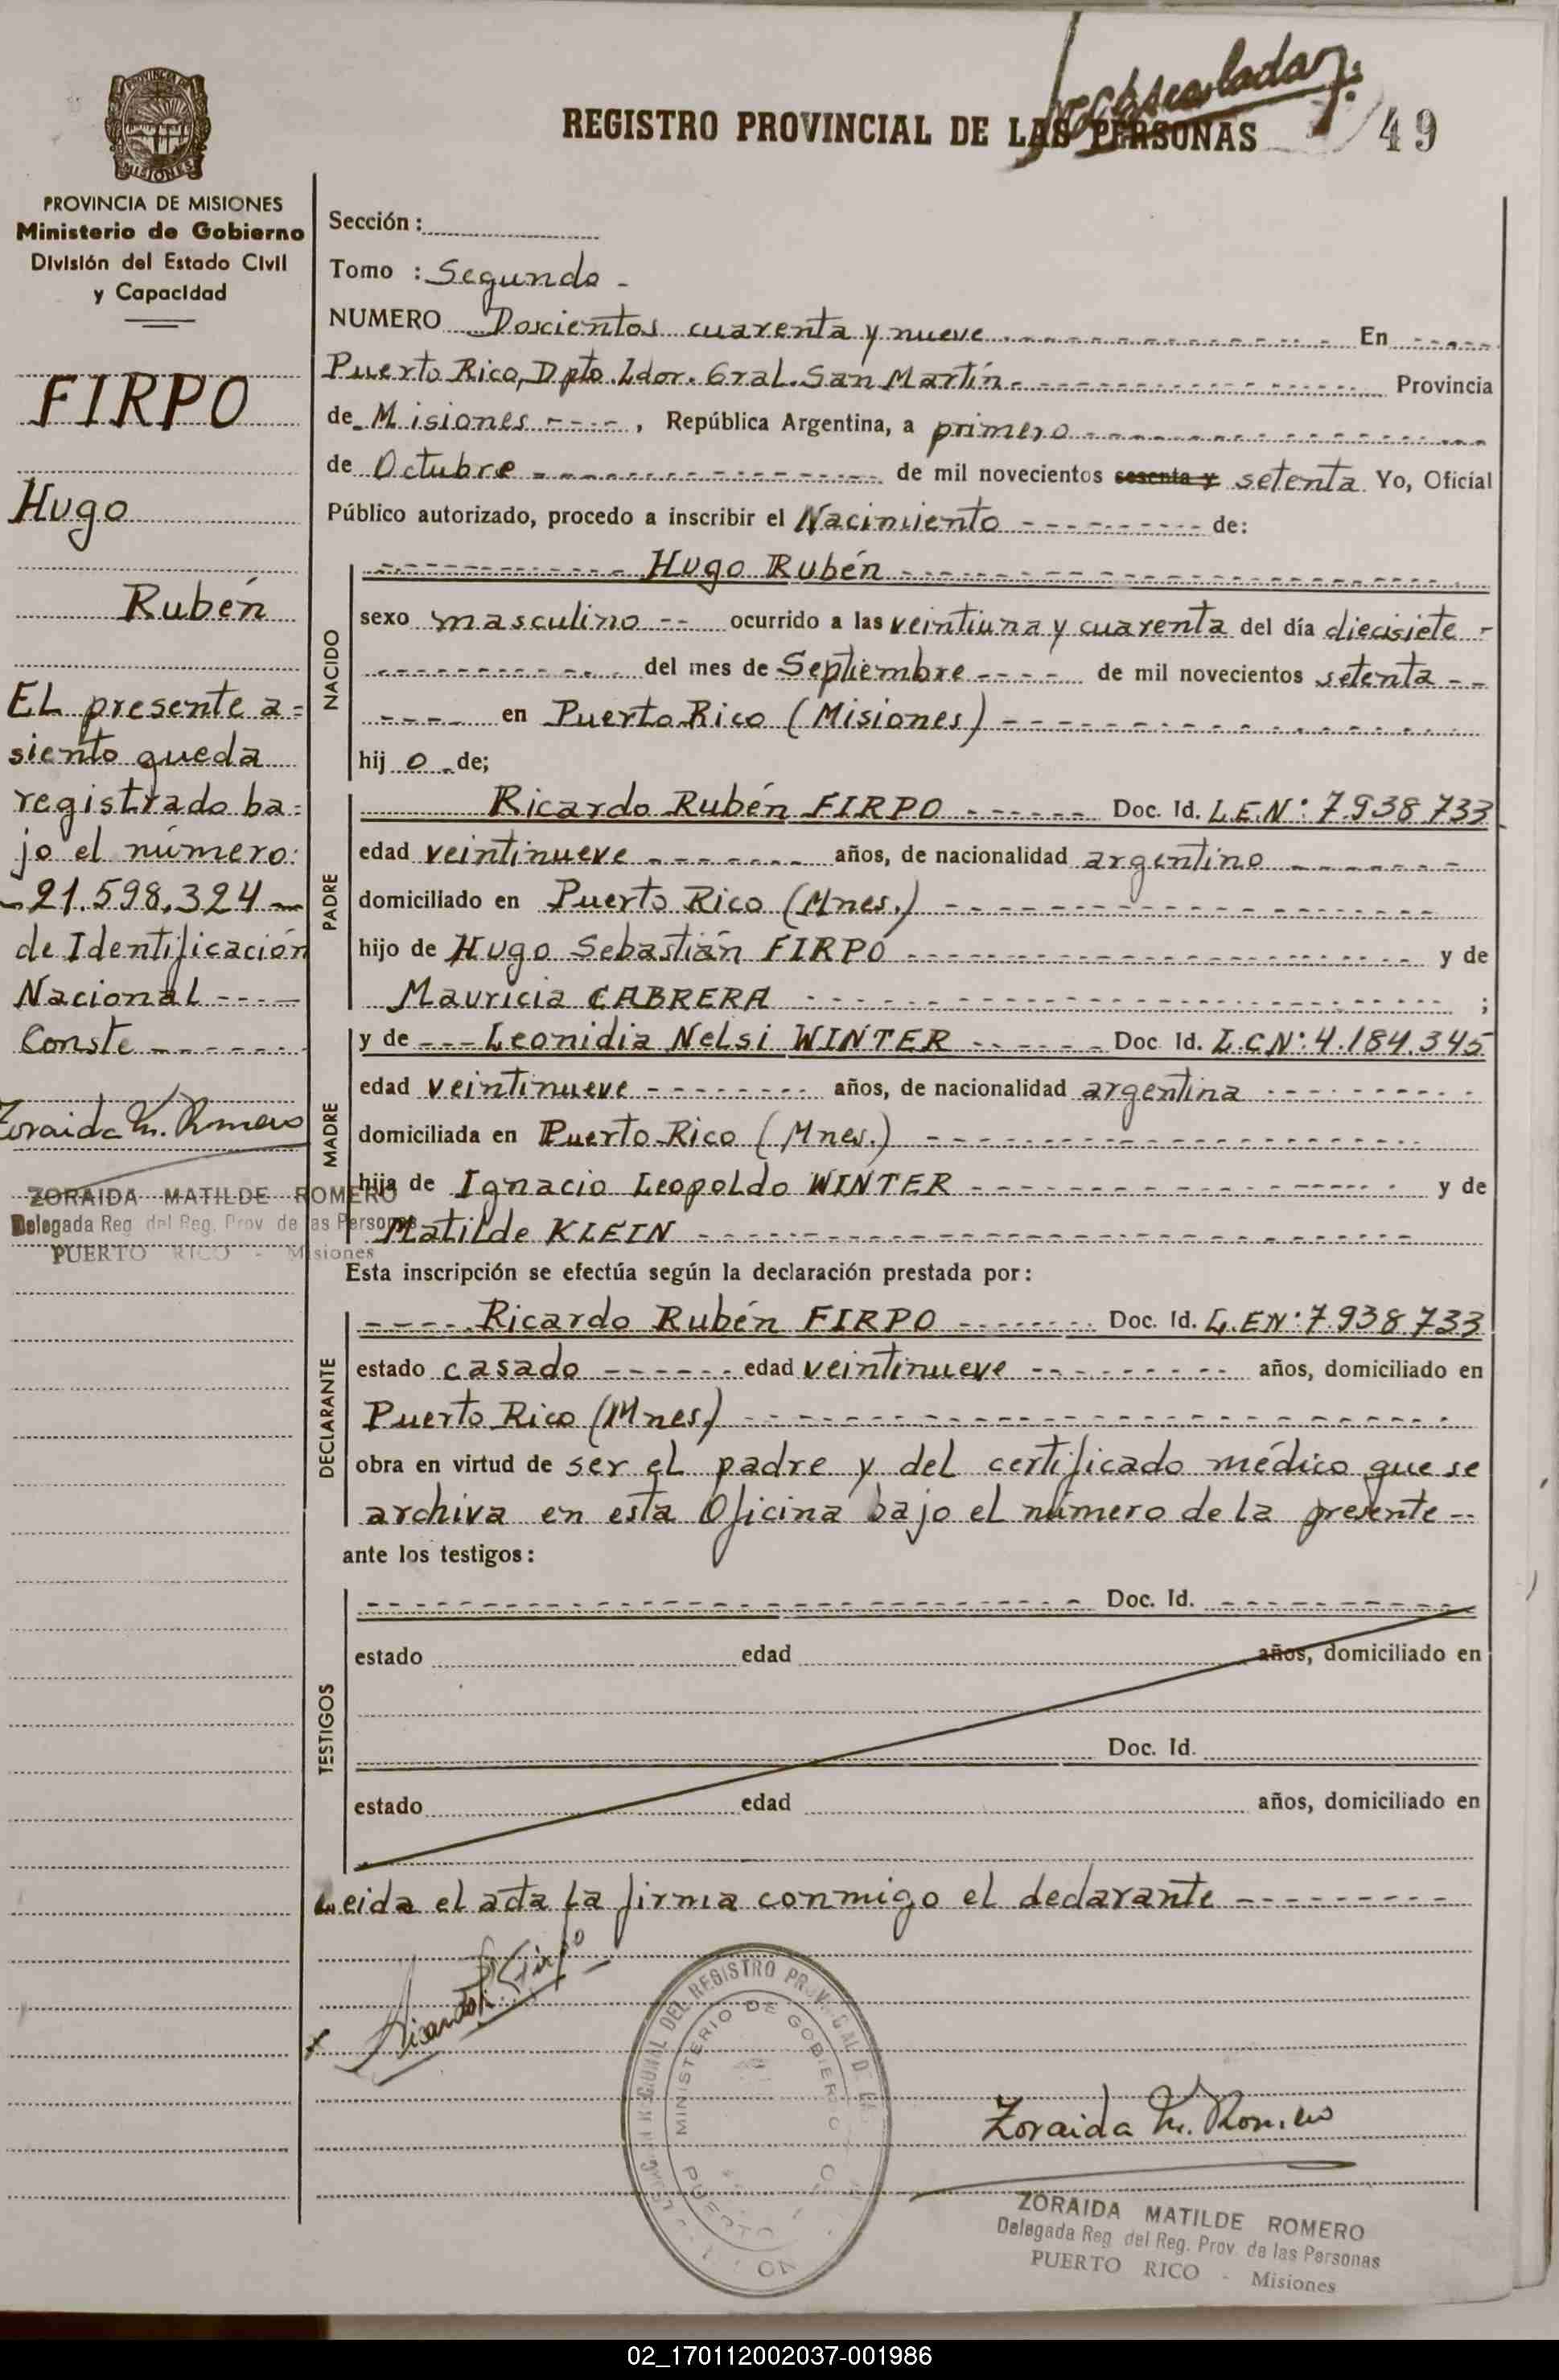 REGISTRO PROVINCIAL DE LAS PERSONAS
49
PROVINCIA DE MISIONES
MISIONES
PROVINCIA DE MISIONES
Ministerio de Gobierno
División del Estado Civil
y Capacidad
FIRPO
Hugo
Rubén
EL presente a=
siento queda
registrado ba=
jo el número:
-21.598.324-
de Identificación
Nacional ----
Conste ------
Zoraida M. Romero
ZORAIDA MATILDE ROMERO
Delegada Reg. del Reg. Prov. de las Personas
PUERTO RICO - Misiones
Sección:
Tomo : Segundo -
NUMERO Doscientos cuarenta y nueve ---- En ----
Puerto Rico, Dpto. Ldor. Gral. San Martín. ---- Provincia
de Misiones ----, República Argentina, a primero ----
de Octubre ---- de mil novecientos sesenta y setenta Yo, Oficial
Público autorizado, procedo a inscribir el Nacimiento ---- de:
NACIDO
---- Hugo Rubén ----
sexo masculino -- ocurrido a las veintiuna y cuarenta del día diecisiete -
---- del mes de Septiembre ---- de mil novecientos setenta --
---- en Puerto Rico (Misiones) ----
hij o - de;
PADRE
Ricardo Rubén FIRPO ---- Doc. Id. L.E.N: 7.938.733
edad veintinueve ---- años, de nacionalidad argentino ----
domiciliado en Puerto Rico (Mnes.) ----
hijo de Hugo Sebastián FIRPO ---- y de
Mauricia CABRERA ---- ;
MADRE
y de --- Leonidia Nelsi WINTER ---- Doc. Id. L.C.N: 4.184.345
edad veintinueve ---- años, de nacionalidad argentina ----
domiciliada en Puerto Rico (Mnes.) ----
hija de Ignacio Leopoldo WINTER ---- y de
Matilde KLEIN ----
Esta inscripción se efectúa según la declaración prestada por:
DECLARANTE
---- Ricardo Rubén FIRPO ---- Doc. Id. L.E.N: 7.938.733
estado casado ---- edad veintinueve ---- años, domiciliado en
Puerto Rico (Mnes.) ----
obra en virtud de ser el padre y del certificado médico que se
archiva en esta Oficina bajo el número de la presente --
ante los testigos:
TESTIGOS
---- Doc. Id. ----
estado edad años, domiciliado en
Doc. Id.
estado edad años, domiciliado en
Leida el acta la firma conmigo el declarante ----
Ricardo R. Firpo
DEL REGISTRO
MINISTERIO DE GOBIERNO
PUERTO
Zoraida M. Romero
ZORAIDA MATILDE ROMERO
Delegada Reg. del Reg. Prov. de las Personas
PUERTO RICO - Misiones
02_170112002037-001986